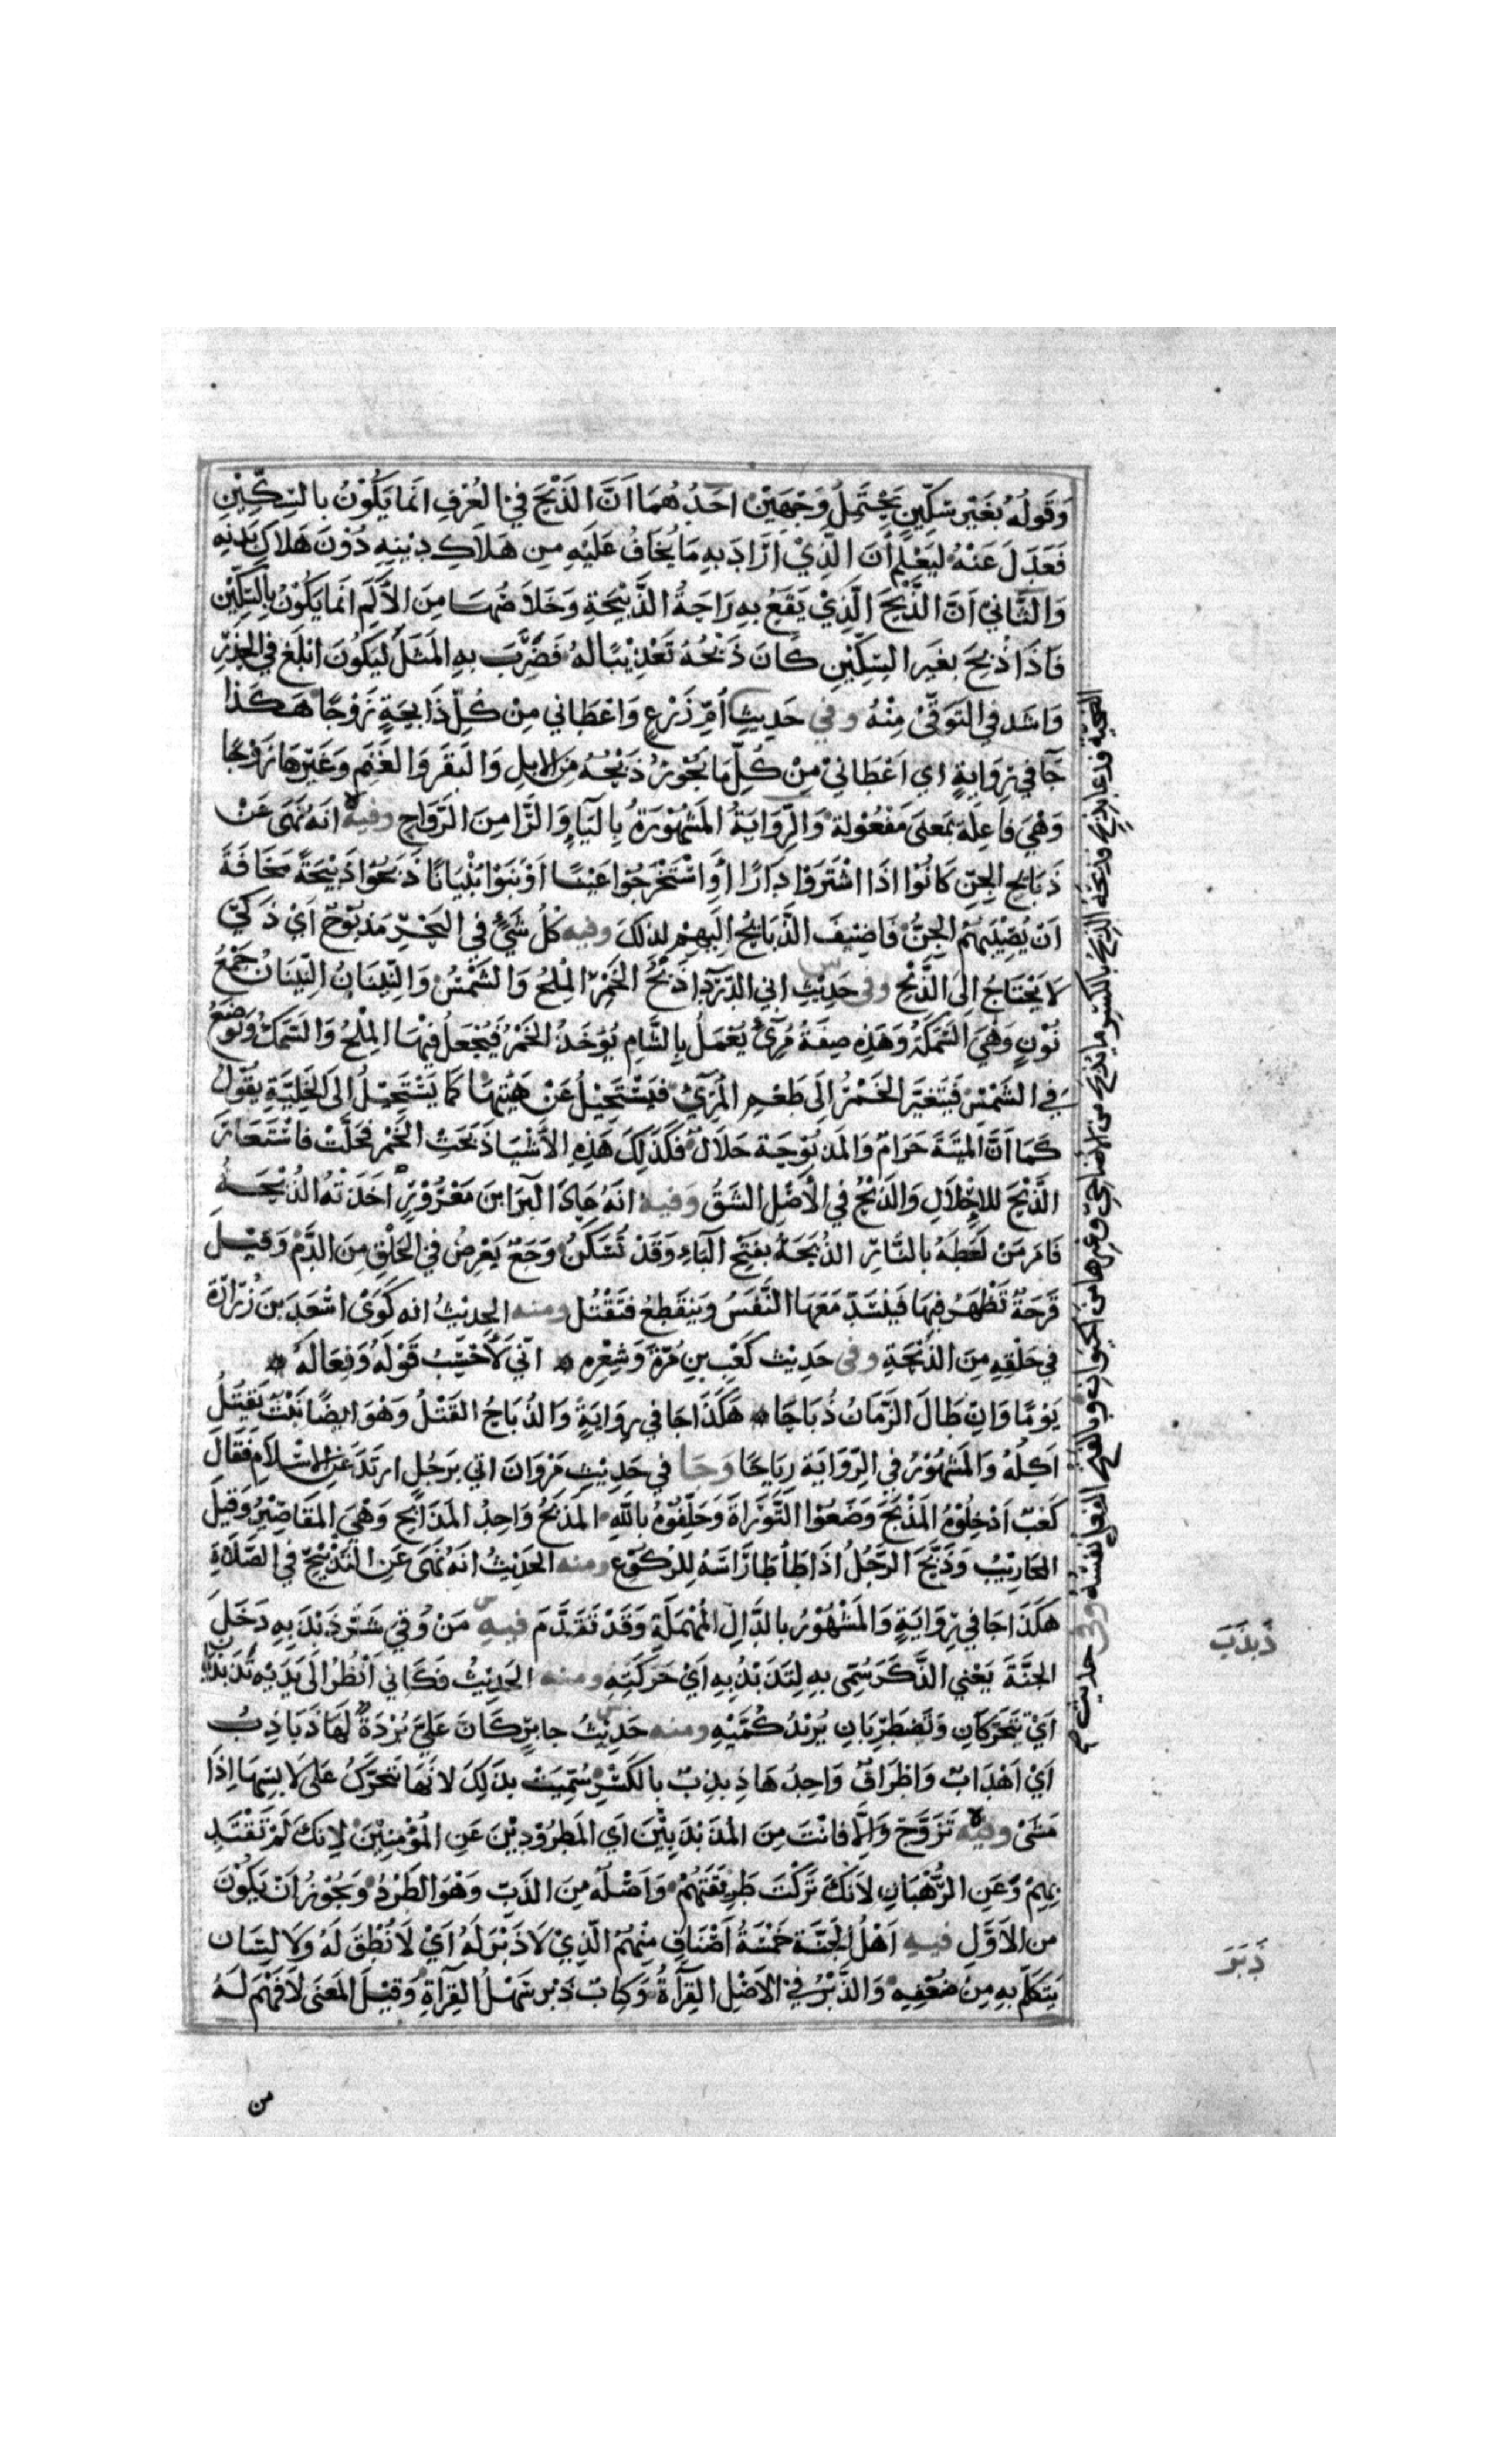 وَقَولُهُ بغَيْر سِكّينٍ يَحْتَمِلُ وَجْهَيْنْ احَدُهُمَا اَنَّ الذَّبْحَ في العُرْفِ انَما يَكُوْنُ بالسِّكِّيْنِ
فَعَدَلَ عَنْهُ ليَعْلَم أنَ الَّذِيْ اَرَادَ بهِ مَا يُخَافُ عَلَيْهِ مِن هَلَاكِ دِيْنِهِ دُوْنَ هَلاكِ بَدَنِهِ
وَالثَّانِيْ اَنَّ الذَّبْحَ الَّذِيْ يَقَعُ بهِ رَاحَةُ الذَّبِيْحَةِ وَخَلَاصُهَا مِنَ الأَلَمِ انَما يَكُوْنُ بِالسِّكِّيْنِ
فَاذَا ذُبِحَ بغَير السِّكِّيْنِ كَانَ ذَبْحُهُ تَعْذِيْبًا لهُ فَضَرَبَ بهِ المَثَلَ ليَكُونَ ابْلَغَ في الحَذَرِ
وَاشَد في التَوَقّيْ مِنْهُ وفي حَدِيثِ أُمّ زَرْعٍ وَاعْطَاني مِنْ كُلّ ذَابحَةٍ زَوْجًا هَكَذا
جَآ في رِوَايةٍ اي اعْطَانيْ مِنْ كُلّ مَا يَجُوْزُ ذَبْحُهُ مِنَ الابِلِ وَالبَقَر وَالغَنَم وَغَيْرهَا زَوْجًا
وَهْيَ فَاعِلَة بمَعنى مَفْعُولة وَالرِّوَايَةُ المَشْهُوْرَةُ بالرَآءِ وَاليَا مِنَ الرَوَاحِ وفيه انَهُ نَهَى عَنْ
ذَبَائحِ الجِنّ كَانُوْا اذَا اشْتَرَوْا دَارًا أوِ اسْتَخْرَجُوا عَيْنًا اَوْ بَنَوْا بُنْيَانًا ذَبَحُوْا ذَبِيْحَةً مَخَافَةَ
اَنْ تُصِيْبَهُمُ الجِنُّ فَاضِيْفَ الذَّبَائحُ اليهِمْ لذلكَ وفيه كُلُ شَيْءٍ في البَحْرِ مَذبُوْحٌ اَيْ ذَكيٌّ
لَا يَحْتَاجُ الى الذَّبْحِ وفي حَدِيْثِ ابي الدَّرْدَآءِ ذَبْحُ الخَمْرِ المِلْحُ وَالشَمْسُ وَالنِّيْنَانُ النِّيْنَانُ جَمْعُ
نُوْنٍ وَهْيَ السَّمَكَةُ وَهَذِهِ صِفَةُ مُرِّيٍّ يُعْمَلُ بِالشَّامِ يُؤخَذُ الخَمْرُ فَيُجْعَلُ فِيْهَا المِلْحُ وَالسَمَكُ وَتُوْضَعُ
في الشَمْسِ فَتَتَغيَّر الخَمْرُ الى طَعْمِ المُرِّيِّ فَتَسْتَحِيْلُ عَنْ هَيْئَتِهَا كَمَا تَسْتَحِيْلُ الى الخَلِيَّةِ يقُوْلُ
كَمَا اَنَّ المَيْتَةَ حَرَامٌ وَالمَذبُوْحَة حَلَالٌ فكَذَلِكَ هَذِهِ الأشْيَا ذَبَحَتِ الخَمْر فحَلَّتْ فاسْتَعَارَ
الذَّبْحَ للاِحْلَالِ وَالذَبْحُ في الأَصْلِ الشَقُ وَفيه انَهُ عَادَ البَرَا بنَ مَعْرُوْرٍ اَخَذَتْهُ الذُبَحَةُ
فَامَرَ مَنْ لَعَطَهُ بالنَّارِ الذُبَحَةُ بفَتْحِ البَاءِ وَقَدْ تُسَكَّنُ وَجَعٌ يَعْرضُ في الحَلْقِ مِنَ الدَّمِ وَقيْلَ
قَرْحَةٌ تَظْهَرُ فِيهَا فَيَنْسَدّ مَعَهَا النَّفَسُ وَيَنْقَطِعُ فتَقْتُل ومنه الحديْثُ انه كَوَىْ اسْعَدَ بْنَ زُرَارَة
في حَلْقِهِ مِنَ الذُبحَةِ وفي حَدِيْث كَعْبِ بنِ مُرَّةَ وَشِعْرِهِ * انّي لَأَحْسِبُ قَوْلَهُ وَفِعَالَهُ *
يَوْمًا وَان طَالَ الزَمَانُ ذُبَاحًا * هَكَذَا جَا في رِوَايَةٍ وَالذُبَاحُ القَتْلُ وَهْوَ ايضًا نَبْتٌ يَقْتُلُ
اَكِلَهُ وَالمَشْهُوْرُ في الرِّوَايَة رِيَاحًا وَجَا في حَدِيْثِ مَرْوَانَ اتي برَجُلٍ ارتَدَّ عَنِ الاسْلَامِ فَقَالَ
كَعْبٌ اَدْخِلُوْهُ المَذْبَحَ وَضَعُوْا التَّوْرَاةَ وَحَلِّفُوْهُ بالَّلهِ المَذبَحُ وَاحِدُ المَذَابحِ وَهْيَ المَقَاصِيْرُ وَقِيْلَ
المحَارِيْبُ وَذَبَّحَ الرَجُلُ اذَا طَأطَأ رَاسَهُ لِلرُكُوْعِ ومنه الحَدِيْثُ انَهُ نَهَى عَنِ التَذْبِيْحِ في الصَّلَاةِ
هَكَذَا جَا في رِوَايَةٍ وَالمَشْهُوْرُ بالدَّالِ المُهْمَلَةِ وَقَدْ تَقَدَّمَ فيه مَنْ وُقي شَرَّ ذَبْذَبهِ دَخَلَ
الجَنَّةَ يَعْني الذَّكَرَ سُمّى بهِ لِتَذَبْذُبهِ اَيْ حَرَكَتِهِ ومنه الحَدِيْثُ فَكَاني اَنْظُرُ الَى يَدَيْهِ تَذَبْذَبَانِ
اَيْ تتَحَرَّكَانِ وَتَضْطَرِبَانِ يُرِيْدُ كُمَّيْهِ ومنه حَدِيْثُ جابرٍ كَانَ عَلَيَّ بُرْدَةٌ لَهَا ذَبَاذِبُ
اَيْ اَهْدَابٌ وَاطْرَافٌ وَاحِدُهَا ذِبذِبٌ بالكَسْرِ سُمّيَتْ بذَلِكَ لانَهَا تتَحَرَّكُ عَلى لَابِسِهَا اِذَا
مَشَىْ وفيه تَزَوَّجْ وَاِلَّا فَانْتَ مِنَ المُذَبْذَبِيْنَ اَي المَطْرُوْدِيْنَ عَنِ المُؤْمِنِيْنَ لِانكَ لَمْ تَقْتَدِ
بِهِمْ وَعَنِ الرُّهْبَانِ لاَنكَ تَرَكْتَ طَرِيْقَتَهُمْ وَاَصْلُهُ مِنَ الذَبِّ وَهْوَ الطَرْدُ وَيَجُوْزُ اَنْ يَكُوْنَ
من الاَوَّلِ فيه اَهْلُ الجَنَّة خَمْسَةُ اَصْنَافٍ مِنْهُمُ الَّذِيْ لَا ذَبْرَ لَهُ اَيْ لَا نُطْقَ لَهُ وَلَا لِسَان
يَتَكَلّمُ بهِ مِنْ ضَعْفِهِ وَالذَّبْرُ في الاَصْلِ القِرَآءةُ وَكِتابٌ ذَبِر سَهْلُ القِرَآءةِ وَقيْلَ المَعنَى لَا فَهْمَ لَهُ
من
الضحية فدعا بذبح فذبحه الذبح بالكسر ما يذبح من الاضاحي وغيرها من الحيوان وبالفتح الفعل نفسه وفي حديث
ذَبذَبَ
ذَبَرَ